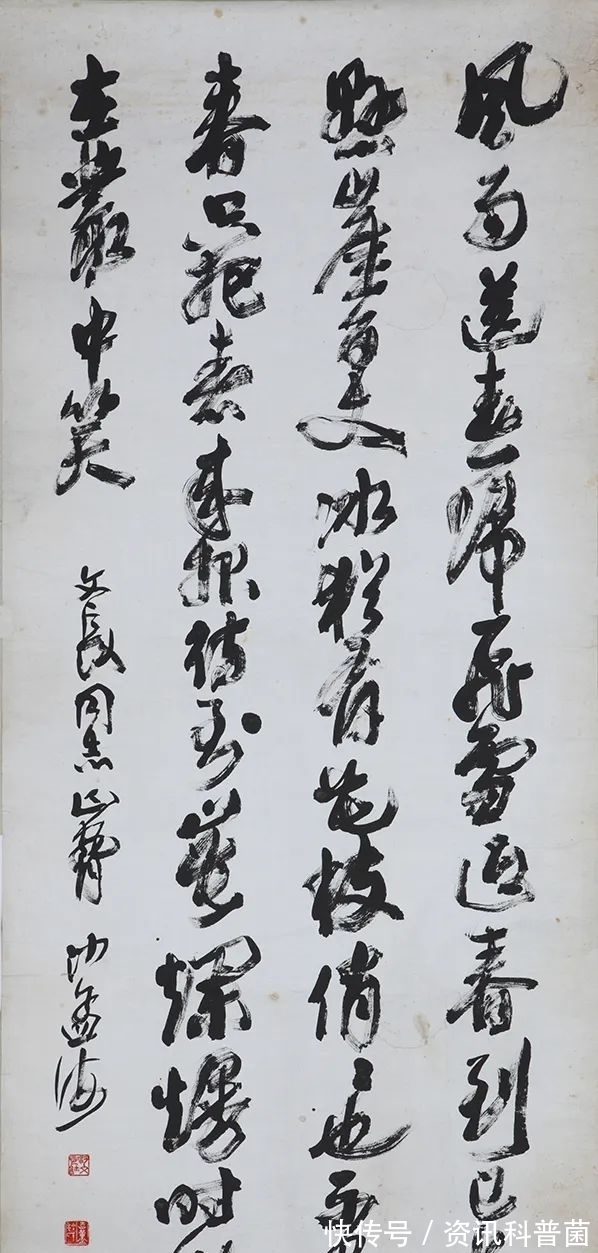 風雨送春歸飛雪迎春到已
懸崖百丈冰猶有花枝俏〻也不
春只把春來報待到山花爛熳時
在叢中笑
文長同志正 沙孟海
快传号 / 资讯科普菌